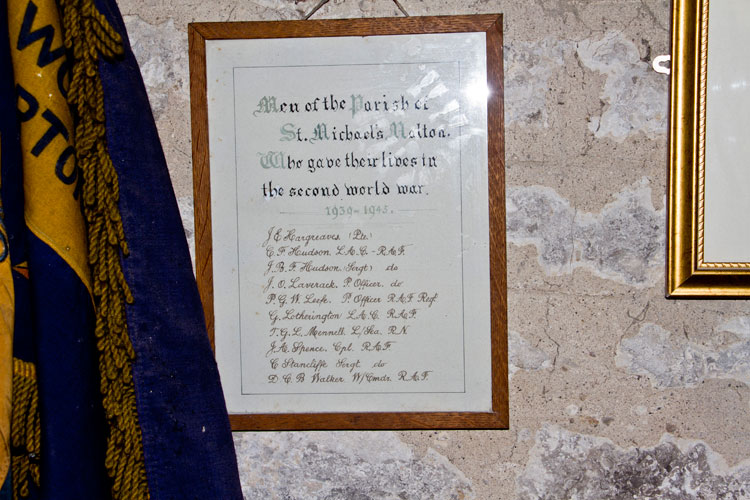 WO
PTO
Men of the Parish of
St. Michael's Malton.
Who gave their lives in
the second world war.
1939-1945.
J E Hargreaves (Pte)
C. F Hudson, L.A.C. - R.A.F.
J. B. F Hudson (Sergt) do
J. O. Laverack. P. Officer. do
P. G. W. Leefe. P. Officer R.A.F Reg.
G. Lotherington L.A.C. R.A.F.
T. G. L. Mennell. L/Sea. R.N
J. A. Spence. Cpl. R.A.F.
C Stancliffe Sergt. do
D. C. B Walker. W/Cmdr. R.A.F.